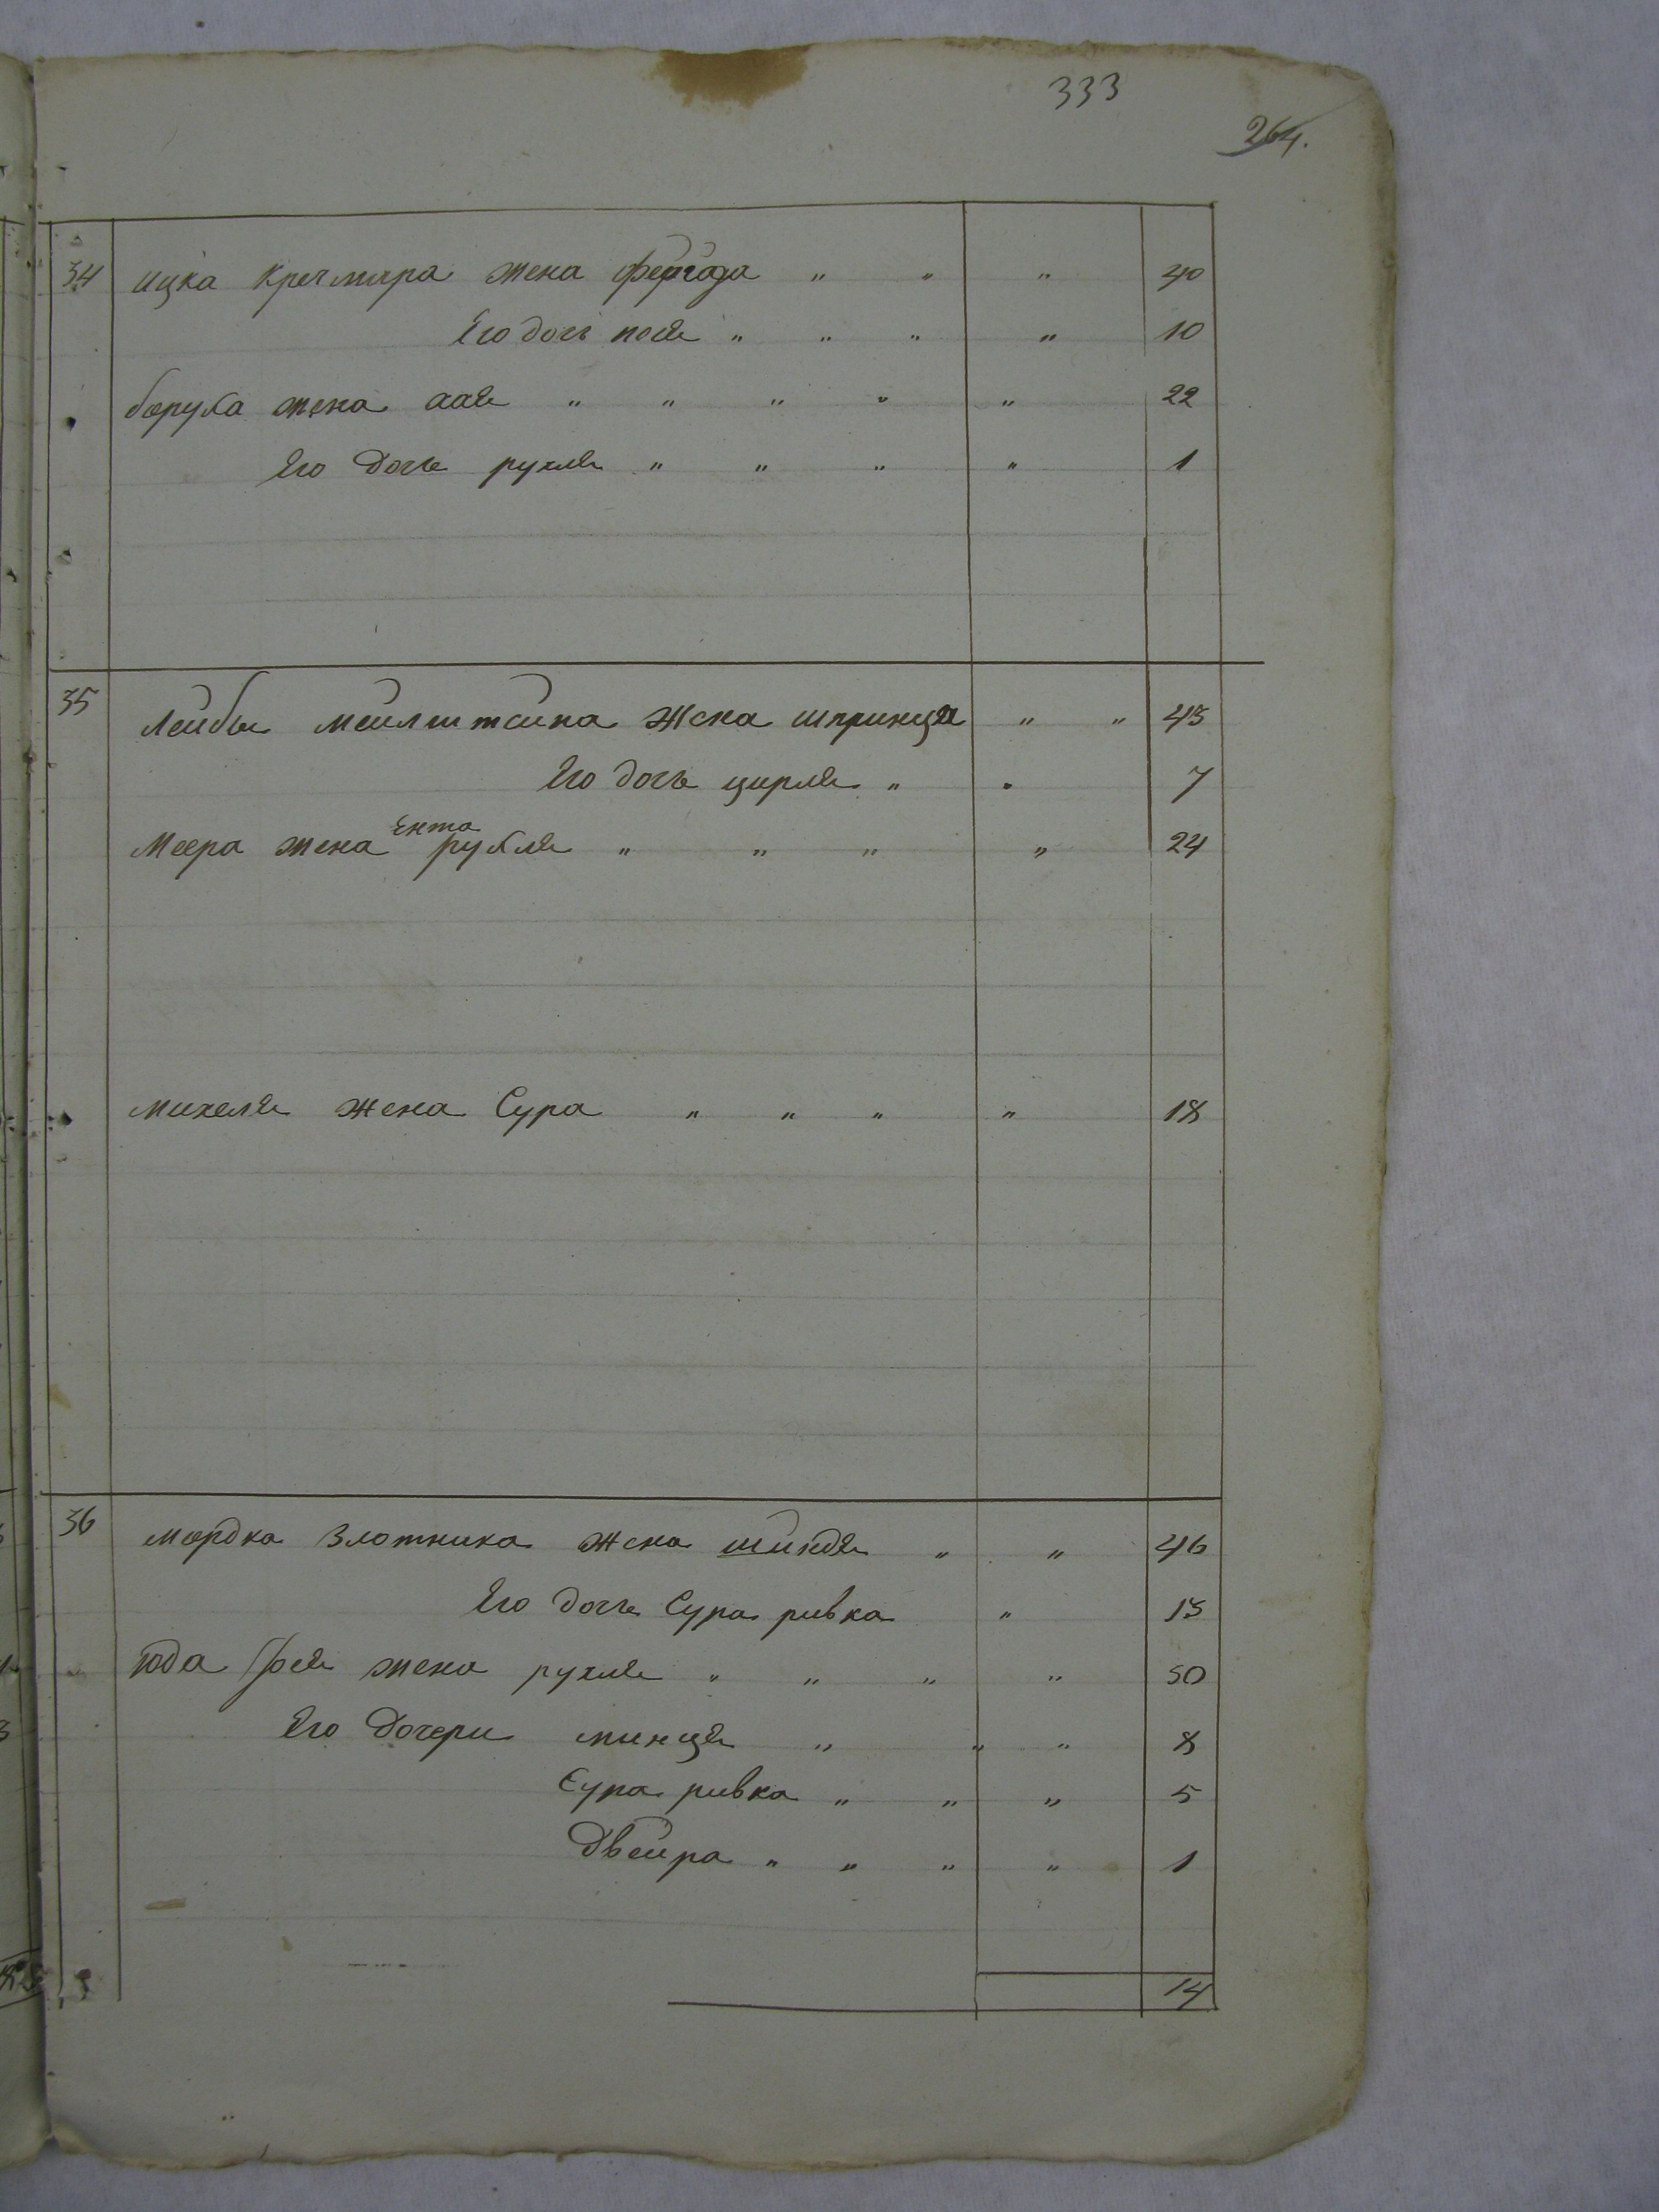 333
264.
34 ицка кречмара жена фейгода " " " 40
Его дочь песя " " " " 10
боруха жена " " " " " 22
Его дочь рухля " " " " 1
35 Лейбы жена шпринца " " 45
Его дочь цирля " " 7
Ента
Меера жена рухля " " " " 24
михеля жена Сура " " " " 18
36 мордка Злотника жена шиндля " " 46
Его дочь Сура ривка " 15
Юда жена рухля " " " " 50
Его дочери минця " " " 8
Сура ривка " " " 5
двейра " " " " 1
14